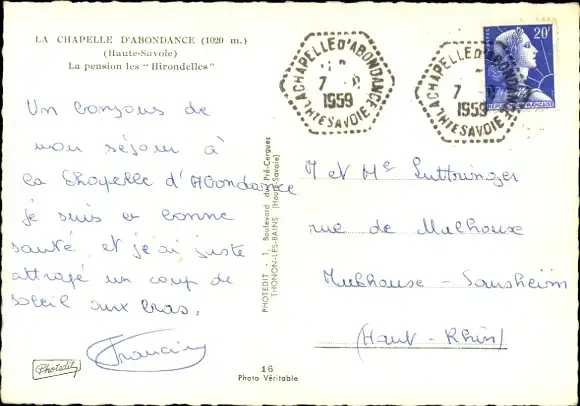 LA CHAPELLE D'ABONDANCE (1020 m.)
(Haute-Savoie)
La pension les "Hirondelles"
Un bonjous de
mon séjour à
la Chapelle d'Abondance
je suis en bonne
santé, et j'ai juste
attrapé un coup de
soleil aux bras.
Francin
Photedit
PHOTEDIT - 1, Boulevard du Pré-Cergues
THONON-LES-BAINS (Haute-Savoie)
16
Photo Véritable
LA CHAPELLE D'ABONDANCE
7
1959
HTE SAVOIE
LA CHAPELLE D'ABONDANCE
7
1959
HTE SAVOIE
20F
FRANÇAISE
M et Me Luttringer
rue de Mulhouse
Mulhouse - Sausheim
(Haut-Rhin)